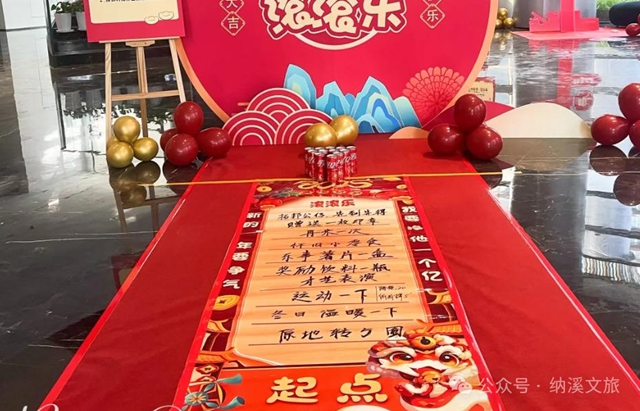 大吉
滚滚乐
乐
滚滚乐
新的一年要争气
我要赚他一个亿
赠送一枚印章
再来一次
怀旧小零食
乐事薯片一包
奖励饮料一瓶
才艺表演
运动一下
冬日温暖一下
原地转5圈
起点
公众号 · 纳溪文旅